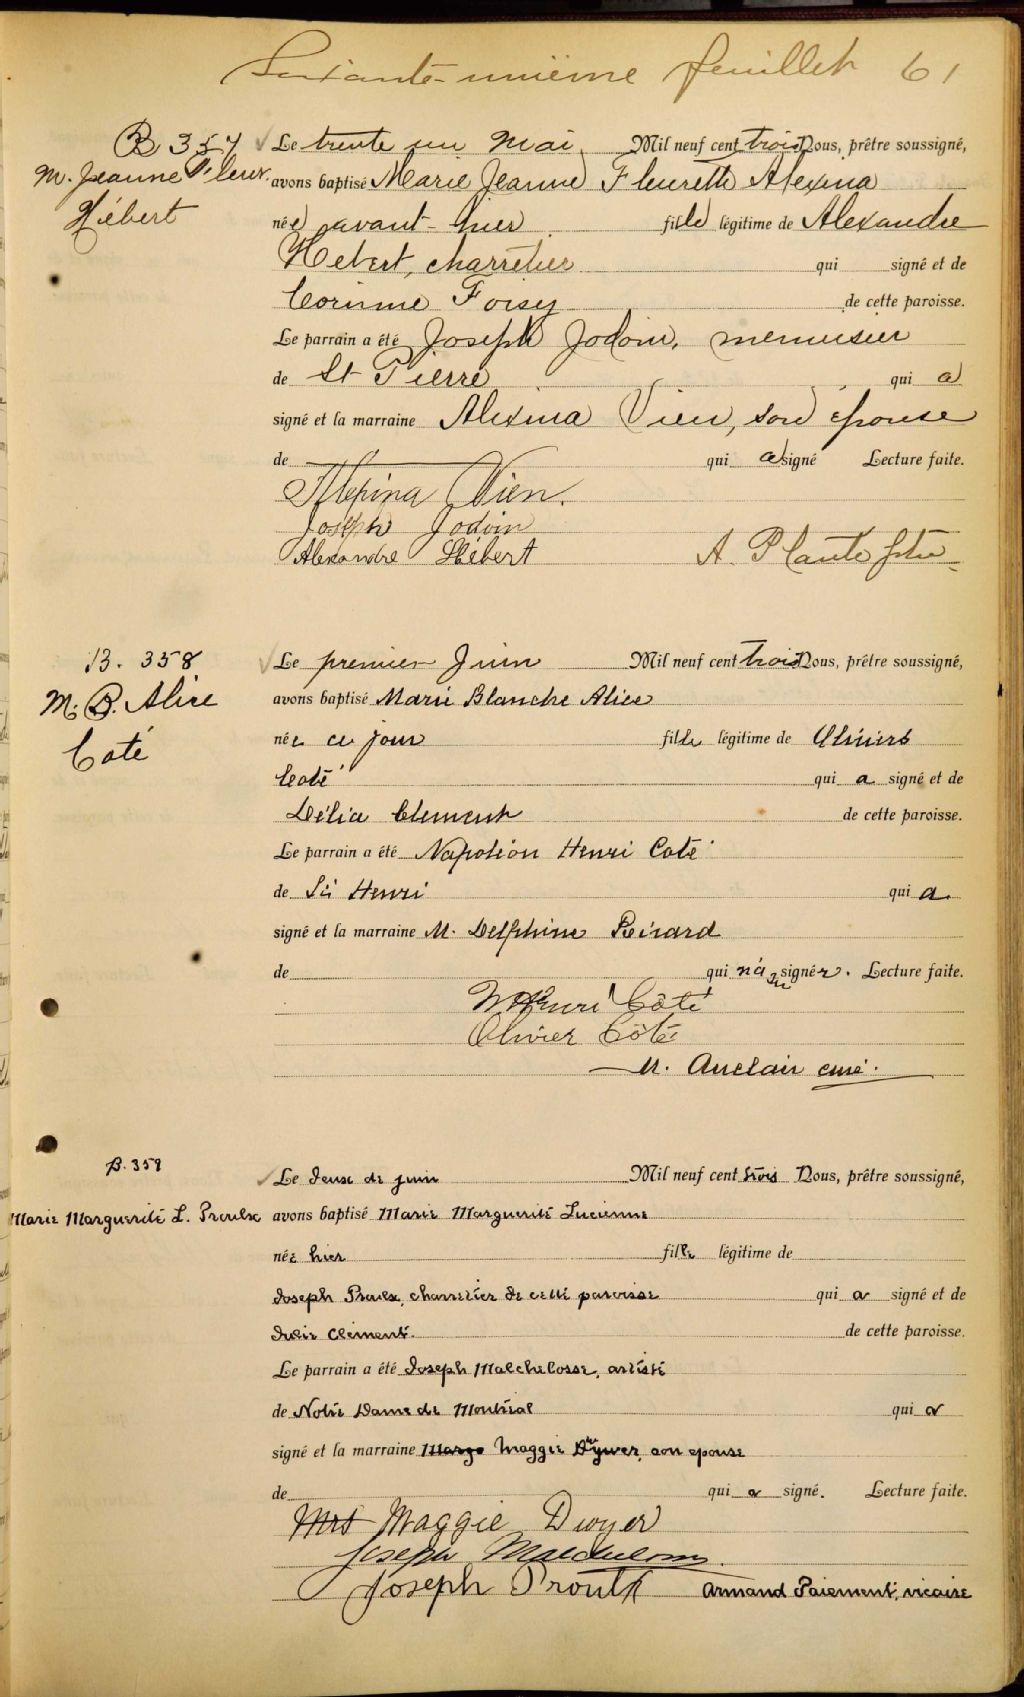 Soixante-unième feuillet 61
B 357
M. Jeanne Fleur.
Hébert
Le trente un Mai Mil neuf cent trois Nous, prêtre soussigné,
avons baptisé Marie Jeanne Fleurette Alexina
née avant-hier fille légitime de Alexandre
Hebert, charretier qui signé et de
Corinne Foisy de cette paroisse.
Le parrain a été Joseph Jodoin, menuisier
de St Pierre qui a
signé et la marraine Alexina Vien, son épouse
de qui a signé Lecture faite.
Alexina Vien.
Joseph Jodoin
Alexandre Hébert A. Plante ptre
B. 358
M. B. Alice
Coté
Le premier Juin Mil neuf cent trois Nous, prêtre soussigné,
avons baptisé Marie Blanche Alice
née ce jour fille légitime de Olivier
Coté qui a signé et de
Délia Clement de cette paroisse.
Le parrain a été Napoléon Henri Coté
de St Henri qui a
signé et la marraine M. Delphine
de qui n'a su signer. Lecture faite.
N Henri Côté
Olivier Côté
M. Auclair curé.
B. 359
Marie Marguerite L. Proulx
Le deux de juin Mil neuf cent trois Nous, prêtre soussigné,
avons baptisé Marie Marguerite Lucienne
née hier fille légitime de
Joseph Proulx, charretier de cette paroisse qui a signé et de
Julie Clément. de cette paroisse.
Le parrain a été Joseph Malchelosse, artiste
de Notre Dame de Montréal qui a
signé et la marraine Marge Maggie Dwyer, son epouse
de qui a signé. Lecture faite.
Mrs Maggie Dwyer
Joseph Malchelosse
Joseph Proulx Armand Paiement, vicaire